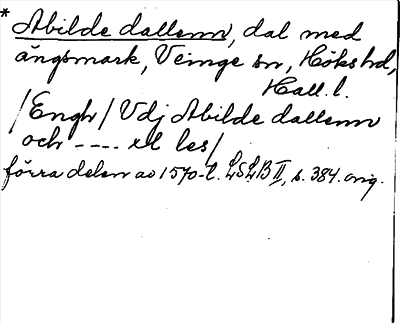 * Abilde dallenn, dal med
ängsmark, Veinge sn, Höks hd,
Hall. l.
/Engh/ Vdj Abilde dallenn
och ---- xll les/
förra delen av 1570-t. LSLB II, s. 384. orig.